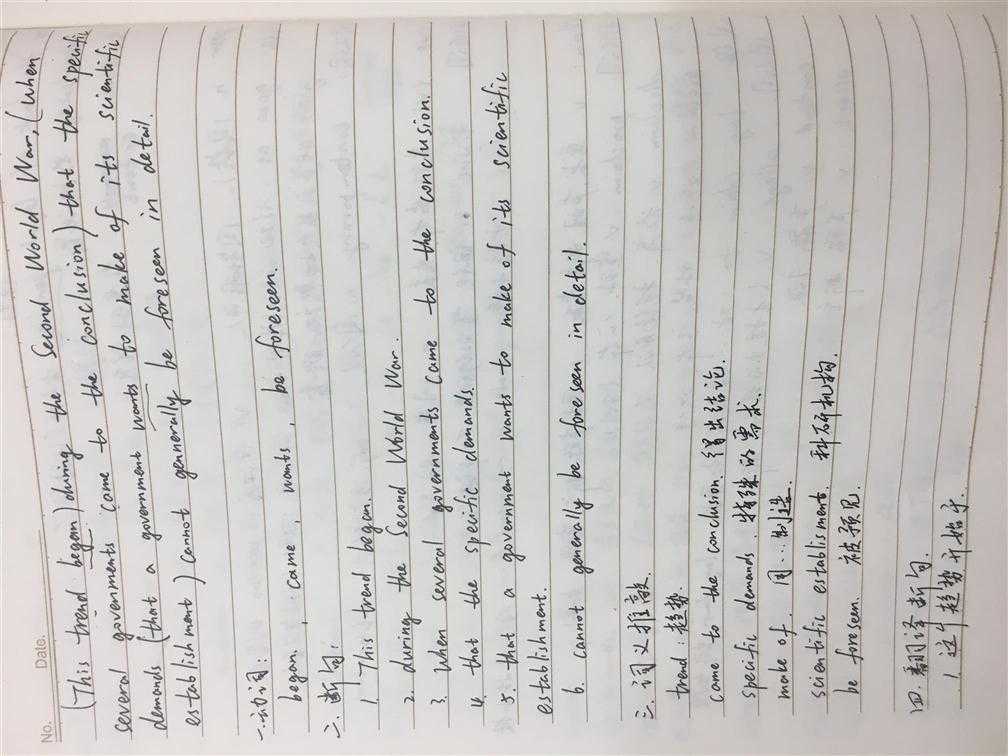 No.
Date.
(This trend began) during the Second World War, (when
several governments came to the conclusion) that the specific
demands (that a government wants to make of its scientific
establishment) cannot generally be foreseen in detail.
一.动词:
began, came, wants, be foreseen.
二.断句:
1. This trend began.
2. during the Second World War.
3. when several governments came to the conclusion.
4. that the specific demands.
5. that a government wants to make of its scientific
establishment.
6. cannot generally be foreseen in detail.
三.词义推敲.
trend: 趋势
came to the conclusion 得出结论.
specific demands. 特殊的需求.
make of. 用…制造.
scientific establisment. 科研机构.
be foreseen. 被预见.
四.翻译断句.
1. 这个趋势开始于.